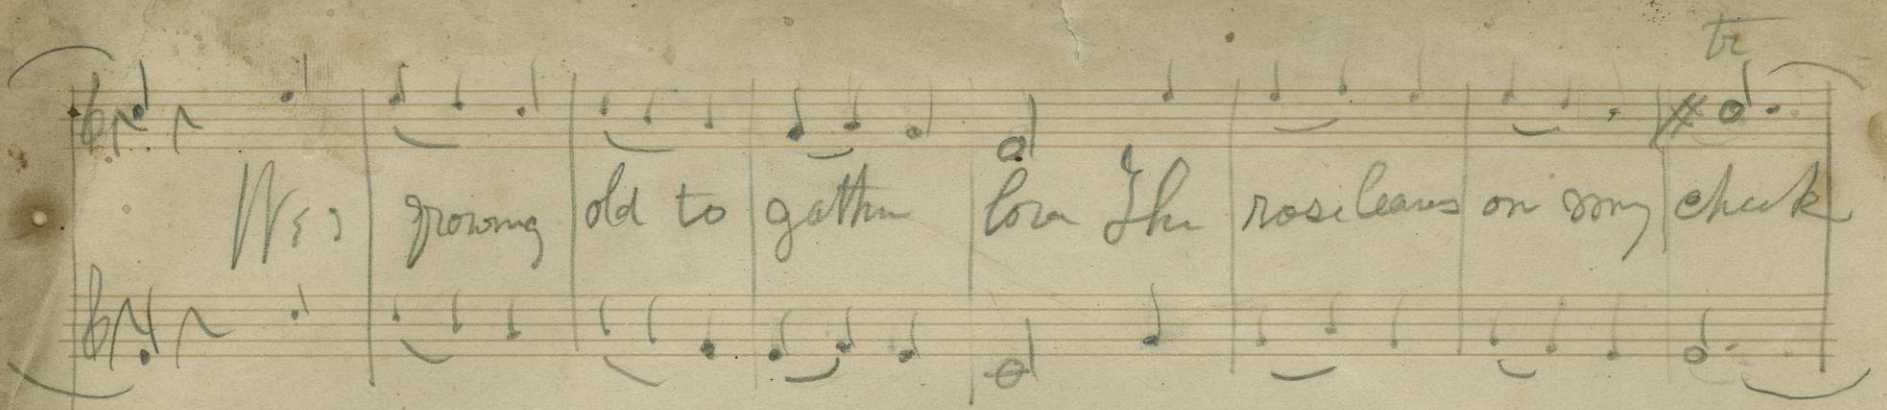 tr
growing old to gather love The rose leaves on my cheek